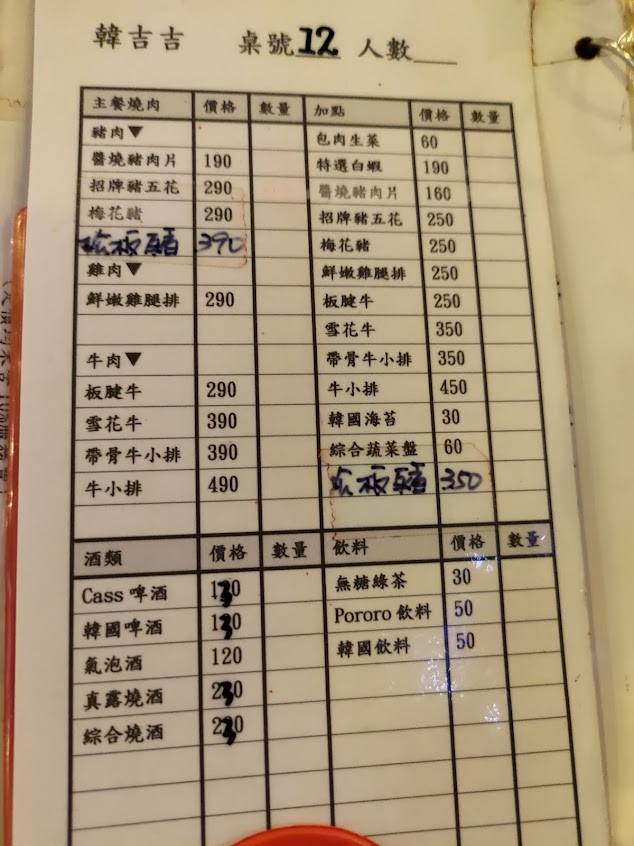 韓吉吉 桌號 12 人數
主餐燒肉 價格 數量 加點 價格 數量
豬肉▼ 包肉生菜 60
醬燒豬肉片 190 特選白蝦 190
招牌豬五花 290 醬燒豬肉片 160
梅花豬 290 招牌豬五花 250
松板豬 390 梅花豬 250
雞肉▼ 鮮嫩雞腿排 250
鮮嫩雞腿排 290 板腱牛 250
雪花牛 350
牛肉▼ 帶骨牛小排 350
板腱牛 290 牛小排 450
雪花牛 390 韓國海苔 30
帶骨牛小排 390 綜合蔬菜盤 60
牛小排 490 松板豬 350
酒類 價格 數量 飲料 價格 數量
Cass 啤酒 130 無糖綠茶 30
韓國啤酒 130 Pororo 飲料 50
氣泡酒 120 韓國飲料 50
真露燒酒 230
綜合燒酒 230